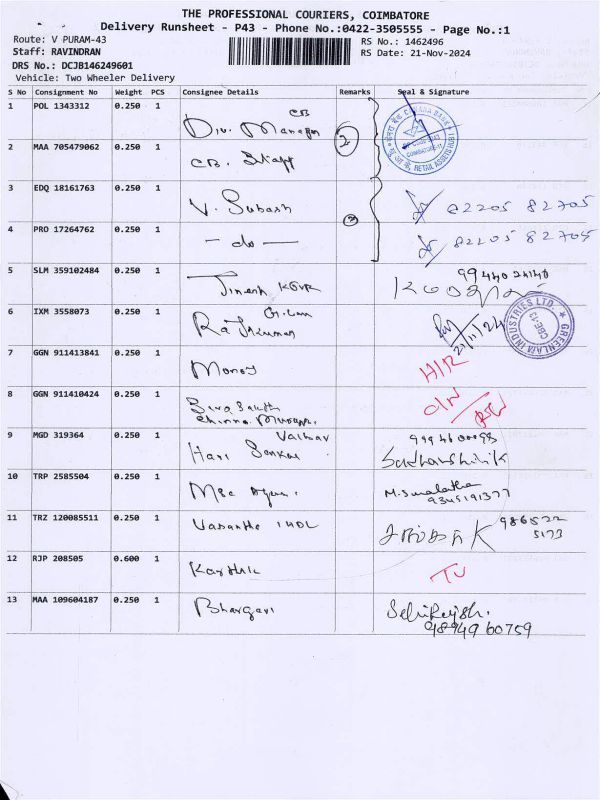 THE PROFESSIONAL COURIERS, COIMBATORE
Delivery Runsheet - P43 - Phone No.:0422-3505555 - Page No.:1
Route: V PURAM-43
Staff: RAVINDRAN
RS No.: 1462496
RS Date: 21-Nov-2024
DRS No.: DCJB146249601
Vehicle: Two Wheeler Delivery
S No Consignment No Weight PCS Consignee Details Remarks Seal & Signature
1 POL 1343312 0.250 1 CB
Div. Manager
CANARA BANK
RETAIL ASSETS HUB
2 MAA 705479062 0.250 1 CB. Staff
3 EDQ 18161763 0.250 1 V. Subash 82205 82705
4 PRO 17264762 0.250 1 — do — 82205 82705
5 SLM 359102484 0.250 1 Jinesh
6 IXM 3558073 0.250 1 Rajkumar 21/11/24
GREENLAM INDUSTRIES LTD.
CBE-13
7 GGN 911413841 0.250 1
8 GGN 911410424 0.250 1
9 MGD 319364 0.250 1 Vaibav
Hari Sankar
10 TRP 2585504 0.250 1 M.Sumalatha
9345191377
11 TRZ 120085511 0.250 1 Vasantha 986522
5173
12 RJP 208505 0.600 1 Karthik
13 MAA 109604187 0.250 1 Bhargavi
9894960759